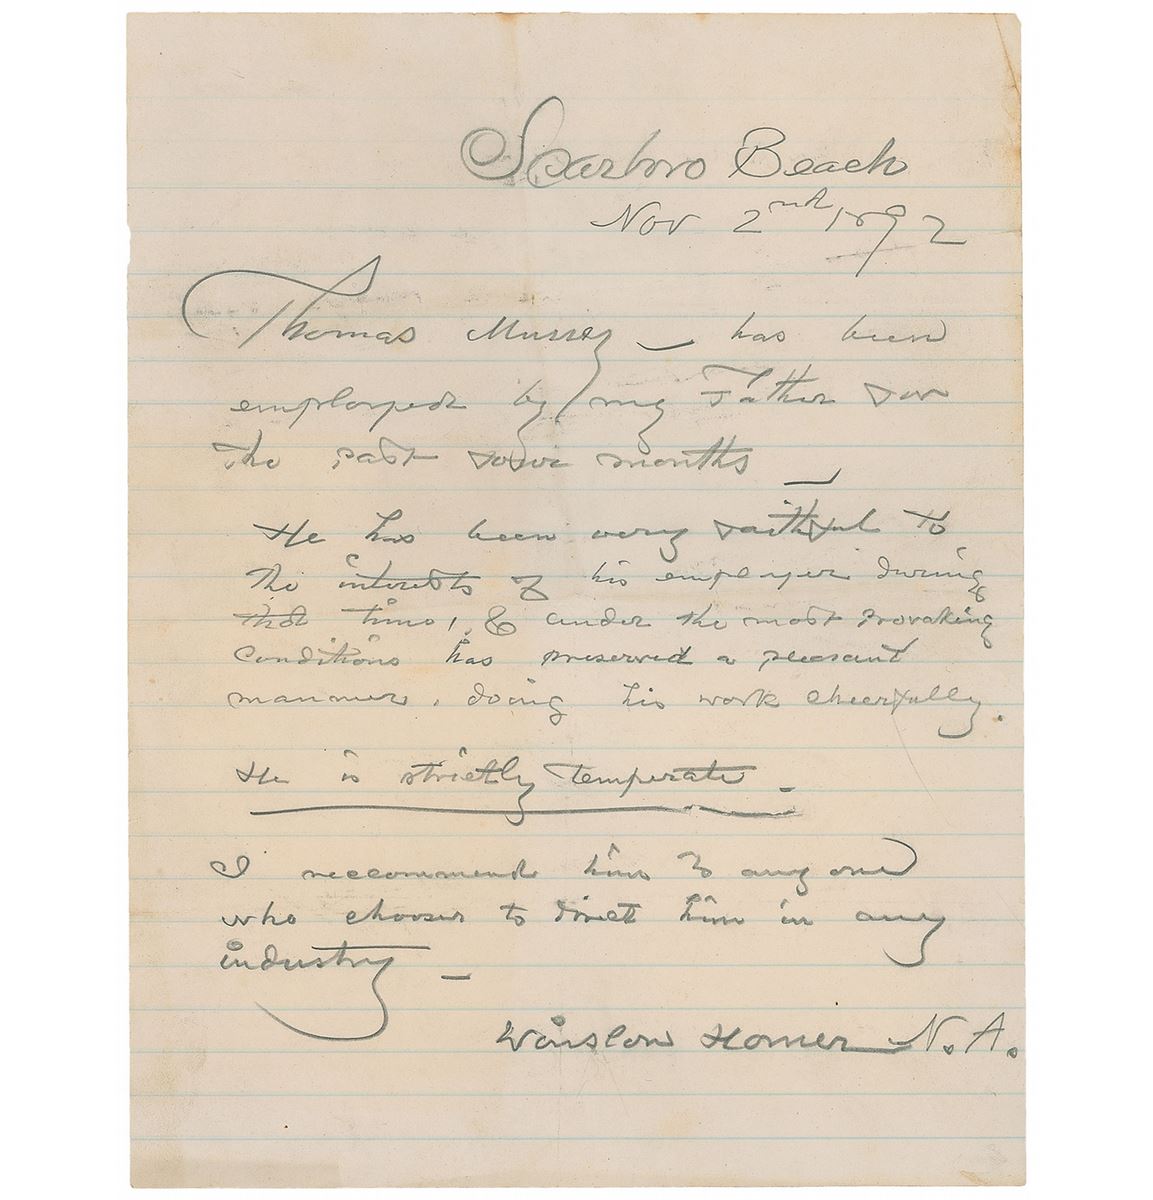 Scarboro Beach
Nov 2nd 1892
Thomas Murrey — has been
employed by my Father for
the past four months —
He has been very faithful to
the interests of his employer during
that time, & under the most provoking
conditions has preserved a pleasant
manner, doing his work cheerfully.
He is strictly temperate -
I reccommend him to any one
who chooses to direct him in any
industry —
Winslow Homer N. A.